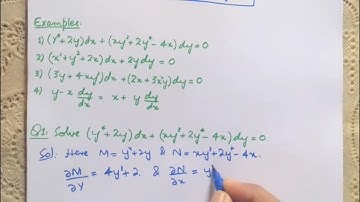 Examples:
1) (y⁴+2y)dx + (xy³+2y⁴-4x)dy=0
2) (x²+y²+2x)dx + 2y dy=0
3) (3y+4xy²)dx+(2x+3x²y)dy=0
4) y-x dy/dx = x+y dy/dx
Q1: Solve (y⁴+2y)dx+(xy³+2y⁴-4x)dy=0
Sol: Here M=y⁴+2y & N=xy³+2y⁴-4x.
∂M/∂y = 4y³+2 & ∂N/∂x = y